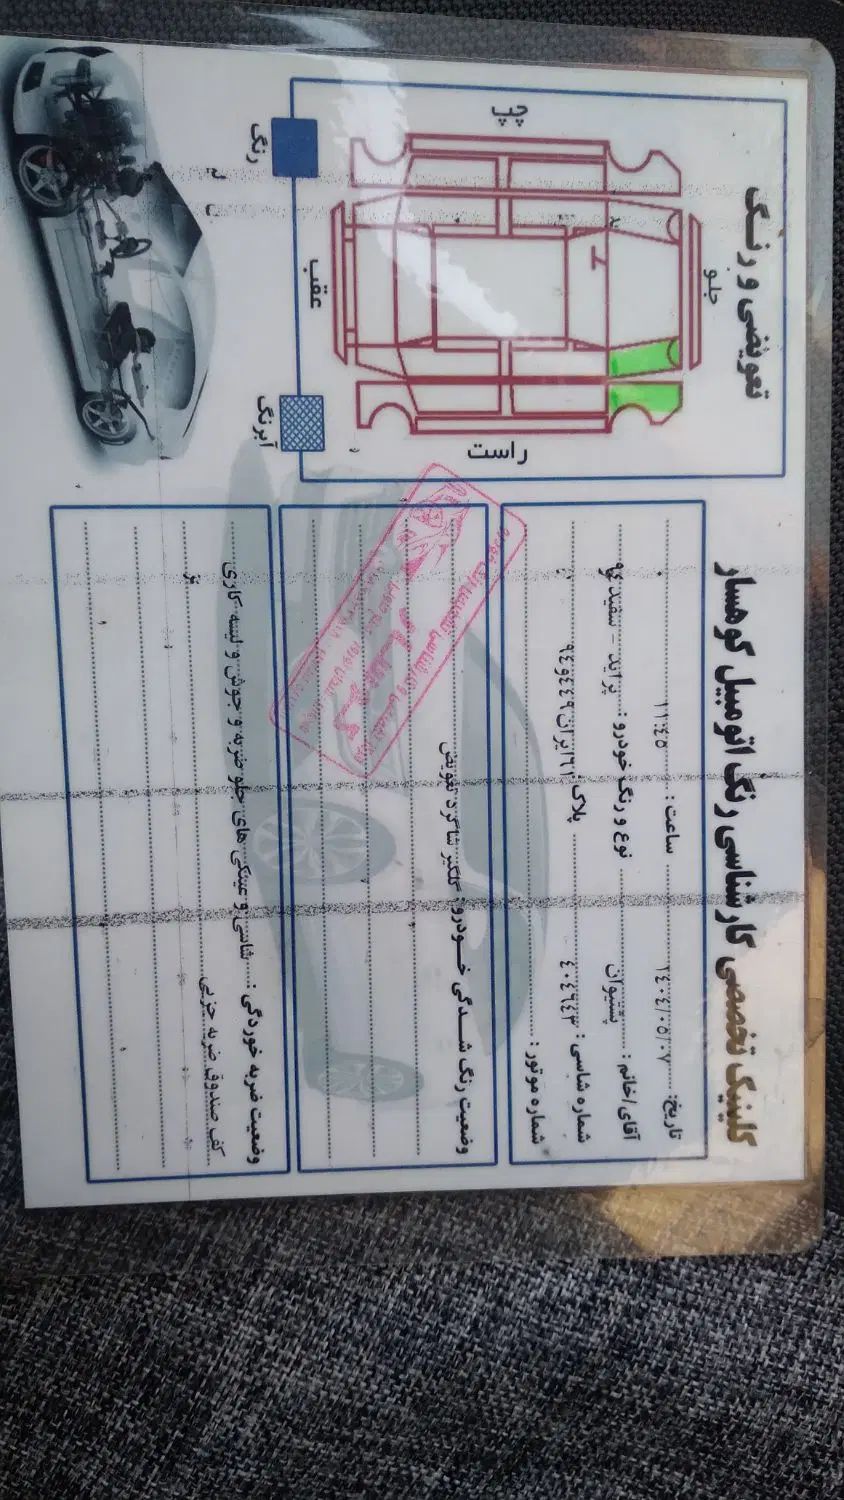 کلینیک تخصصی کارشناسی رنگ اتومبیل کوهسار
تاریخ: ١٤٠٤/٠٥/٠٧ ساعت: ١١:٤٥
آقای/خانم: پشتیوان نوع و رنگ خودرو: پراید - سفید ٩٤
شماره شاسی: ٤٠٤٦٤٣ پلاک:
شماره موتور:
وضعیت رنگ شدگی خودرو: گلگیر شاگرد تعویض
وضعیت ضربه خوردگی: شاسی و عینکی های جلو ضربه و جوش و لیسه کاری
کف صندوق ضربه جزیی
تعویضی و رنگ
جلو
چپ
راست
عقب
رنگ
آبرنگ